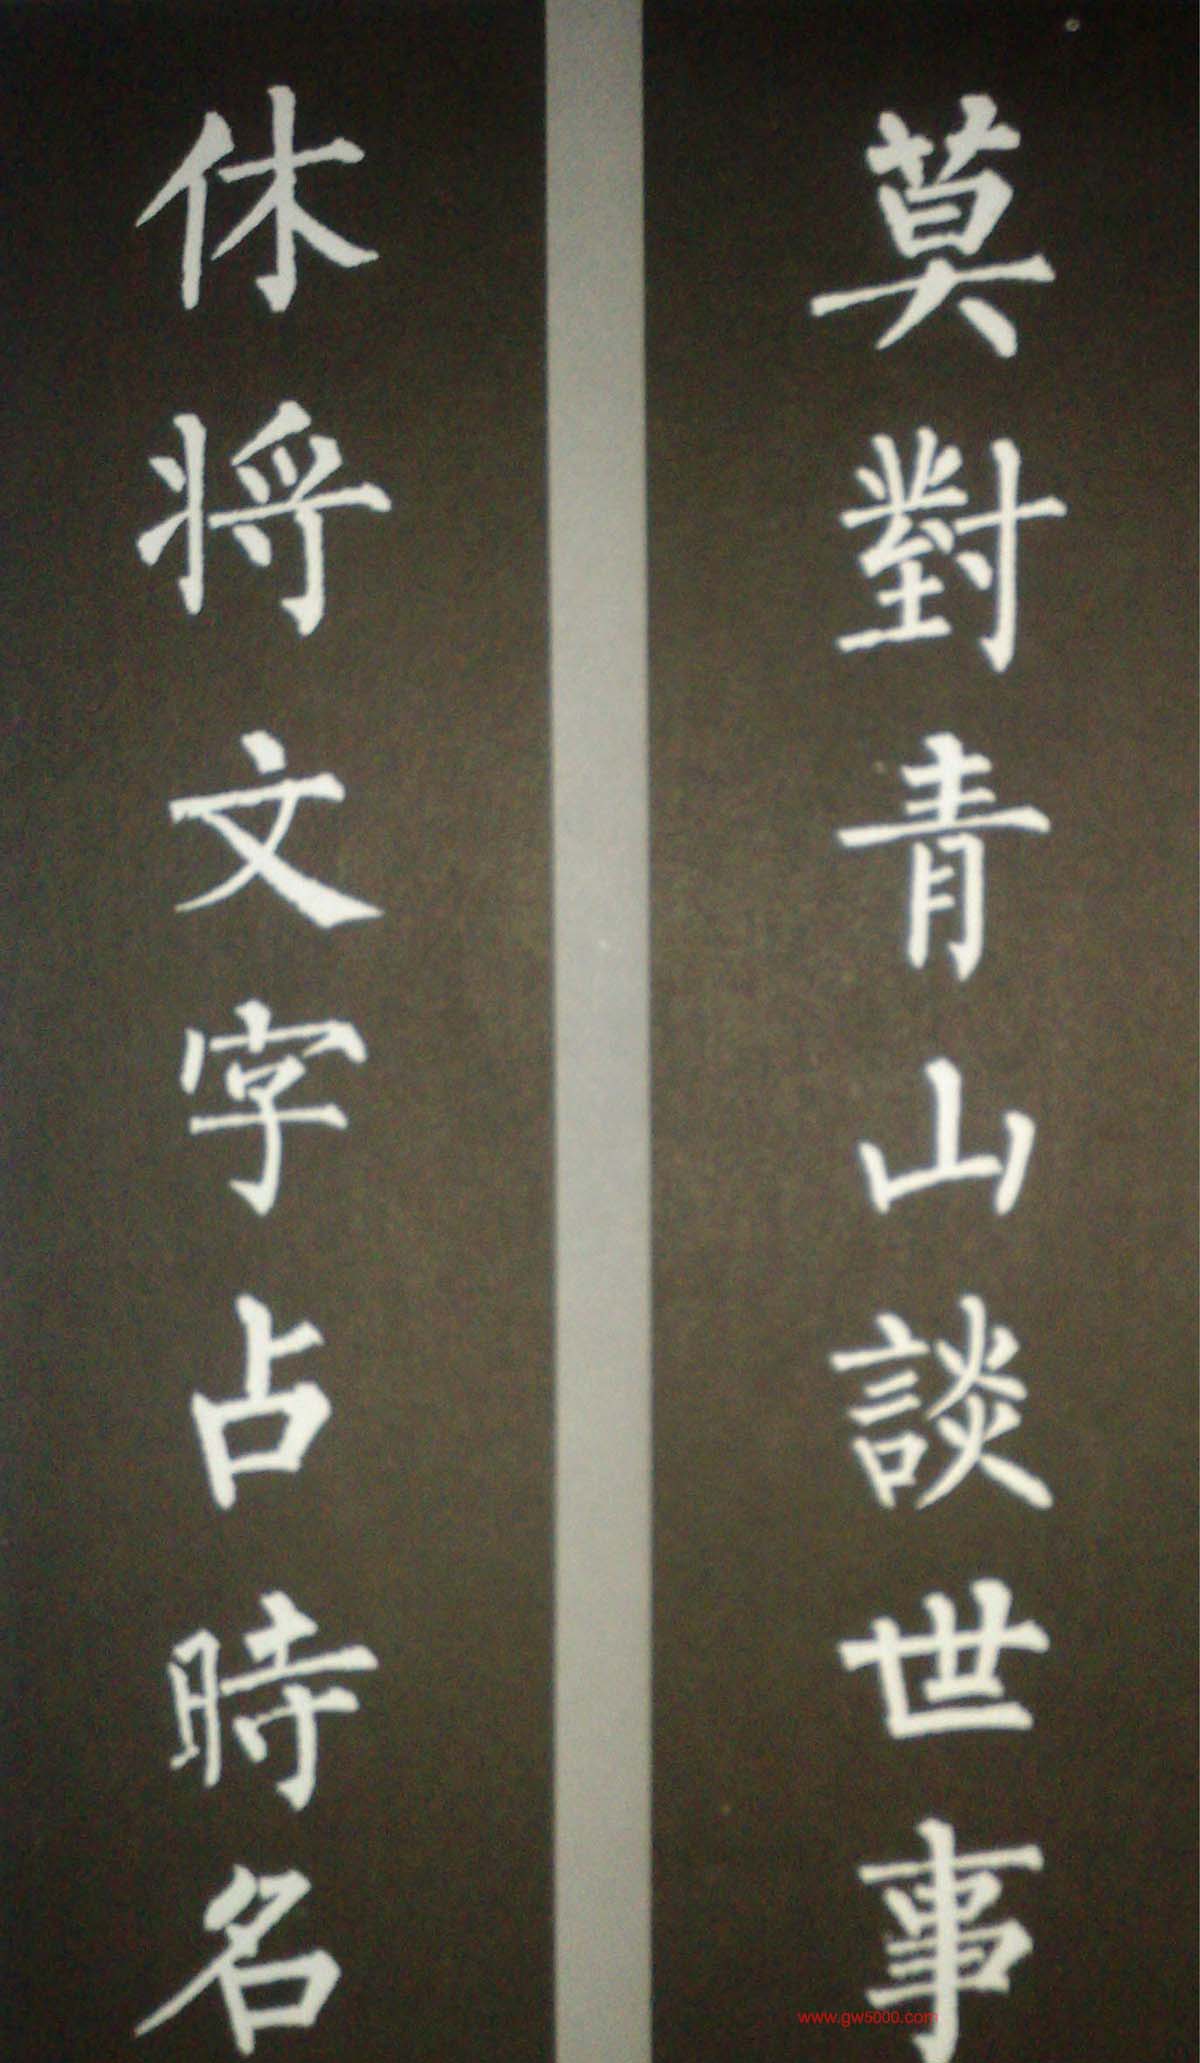 莫對青山談世事
休將文字占時名
www.gw5000.com